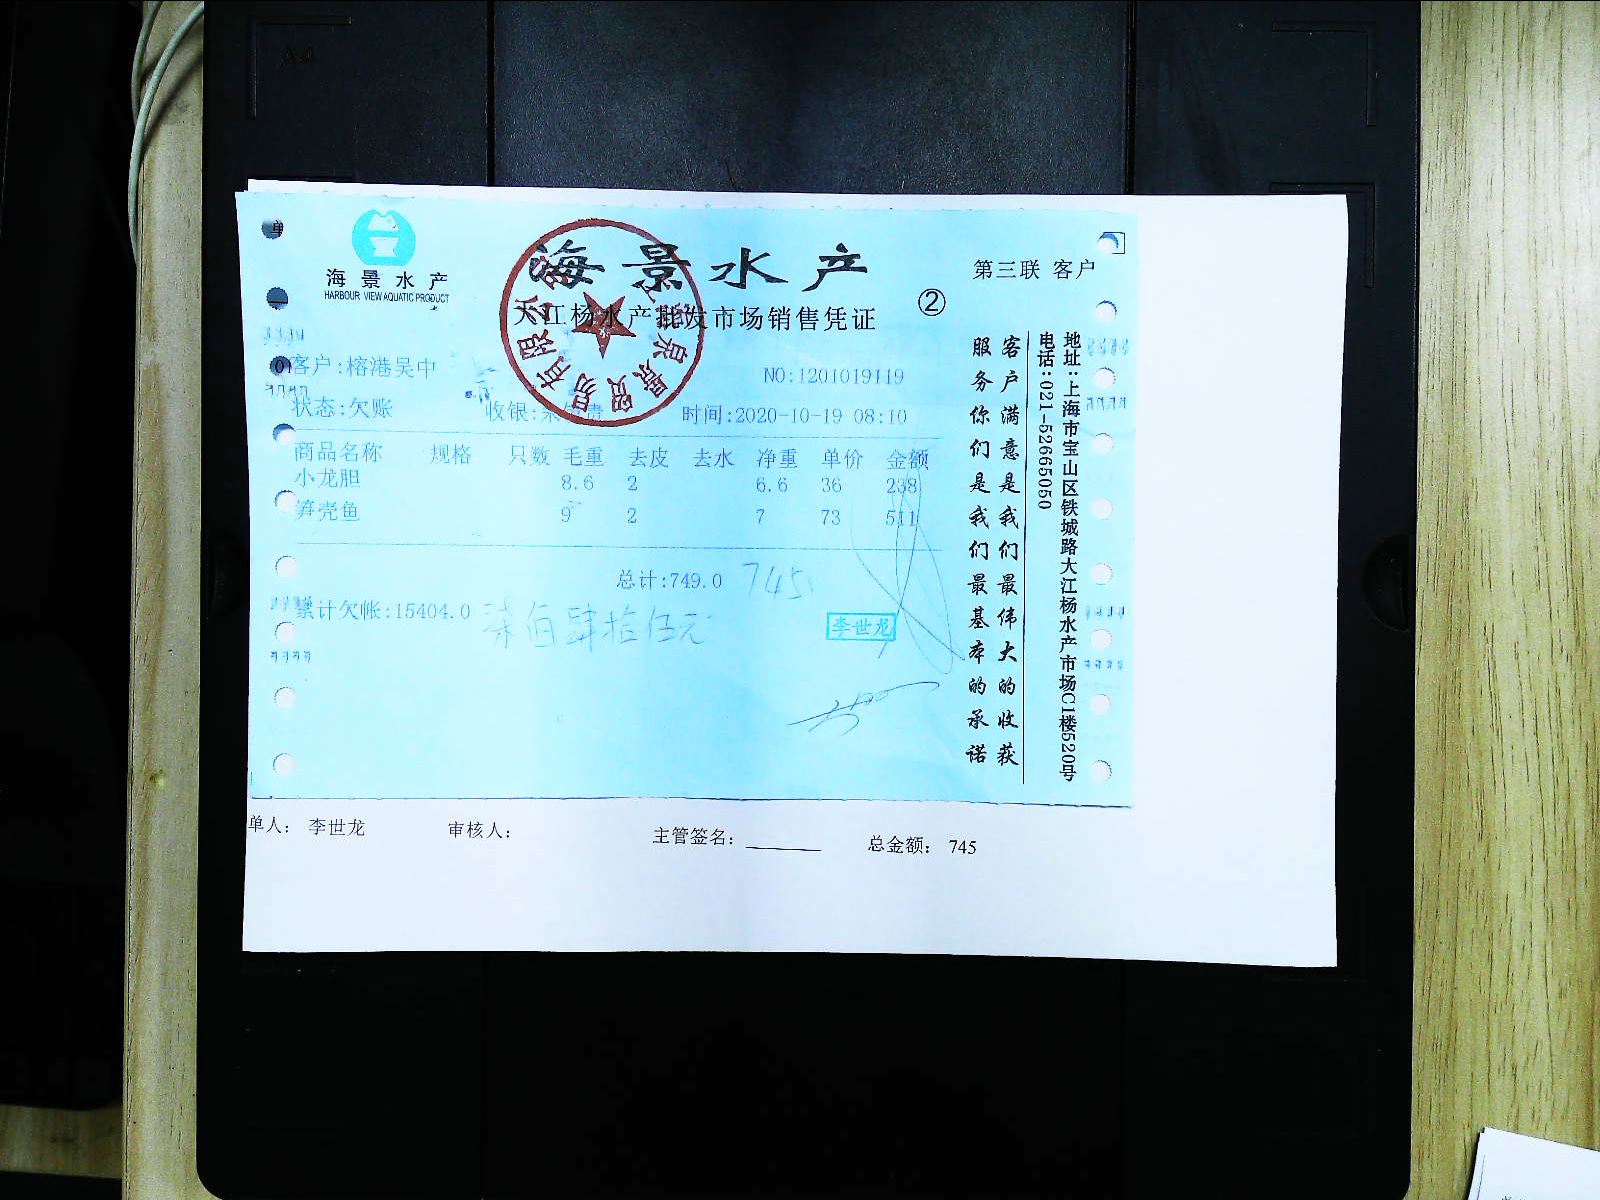 A4
海景水产
HARBOUR VIEW AQUATIC PRODUCT
海景水产
大江杨水产批发市场销售凭证
②
第三联 客户
客户:榕港吴中
NO:1201019119
状态:欠账 收银: 时间:2020-10-19 08:10
商品名称 规格 只数 毛重 去皮 去水 净重 单价 金额
小龙胆 8.6 2 6.6 36 238
笋壳鱼 9 2 7 73 511
总计:749.0 745
累计欠帐:15404.0 柒佰肆拾伍元
李世龙
客户满意是我们最伟大的收获
服务你们是我们最基本的承诺
地址:上海市宝山区铁城路大江杨水产市场C1楼520号
电话:021-52665050
单人: 李世龙 审核人: 主管签名: 总金额: 745